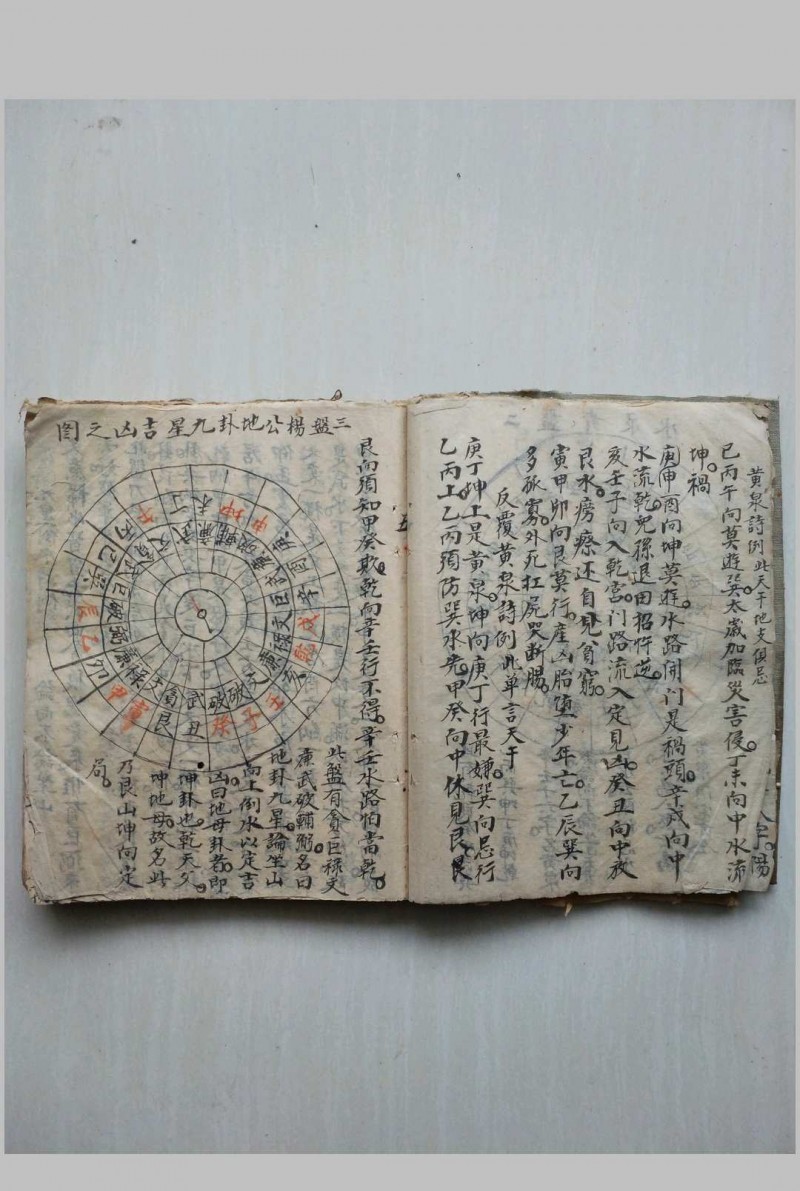 黃泉詩例此天干地支俱忌
巳丙午向莫遊巽。太歲加臨災害侵。丁未向中水流
坤。禍
庚申酉向坤莫遊。水路開門是禍頭。辛戌向中
水流乾。兒孫退田招忤逆。
亥壬子向入乾宮。門路流入定見凶。癸丑向中放
艮水。癆瘵還自見貧窮。
寅甲卯向艮莫行。産凶胎墮少年亡。乙辰巽向
多孤寡。外死扛屍哭断腸。
反覆黃泉詩例此单言天干
庚丁坤上是黃泉。坤向庚丁行最嫌。巽向忌行
乙丙上。乙丙須防巽水先。甲癸向中休見艮。艮
艮向須知甲癸欺。乾向辛壬行不得。辛壬水路怕當乾。
三盤楊公地卦九星吉凶之图
此盤有貪巨禄文
廉武破輔弼。名曰
地卦九星。論坐山
向上倒水以定吉
凶。曰地母卦者。即
坤卦也。乾天父。
坤地母。故名此。
乃艮山坤向定
局。
丁
坤
申
庚
辛
戌
壬
子
丑
艮
卯
乙
辰
丙
武
破
巨
文
廉
禄
貪
輔
弼